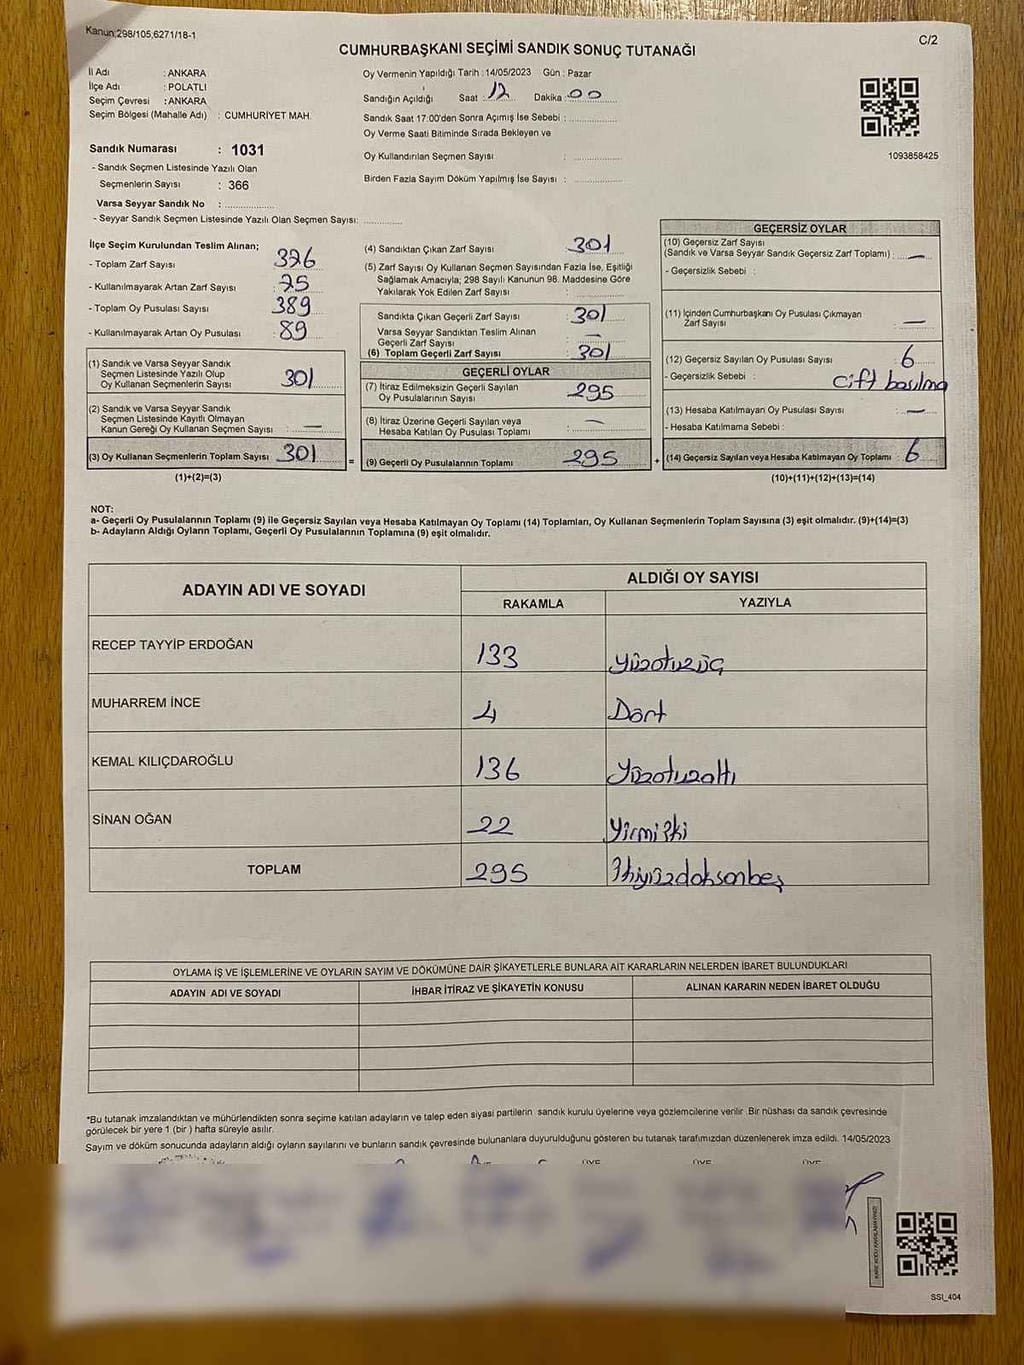 Kanun:298/105,6271/18-1
C/2
CUMHURBAŞKANI SEÇİMİ SANDIK SONUÇ TUTANAĞI
İl Adı : ANKARA
İlçe Adı : POLATLI
Seçim Çevresi : ANKARA
Seçim Bölgesi (Mahalle Adı) : CUMHURİYET MAH.
Sandık Numarası : 1031
- Sandık Seçmen Listesinde Yazılı Olan
Seçmenlerin Sayısı : 366
Varsa Seyyar Sandık No :
- Seyyar Sandık Seçmen Listesinde Yazılı Olan Seçmen Sayısı:
Oy Vermenin Yapıldığı Tarih : 14/05/2023 Gün : Pazar
Sandığın Açıldığı Saat : 12 Dakika : 00
Sandık Saat 17:00'den Sonra Açımış İse Sebebi :
Oy Verme Saati Bitiminde Sırada Bekleyen ve
Oy Kullandırılan Seçmen Sayısı :
Birden Fazla Sayım Döküm Yapılmış İse Sayısı :
1093858425
İlçe Seçim Kurulundan Teslim Alınan;
- Toplam Zarf Sayısı : 376
- Kullanılmayarak Artan Zarf Sayısı : 75
- Toplam Oy Pusulası Sayısı : 389
- Kullanılmayarak Artan Oy Pusulası : 89
(1) Sandık ve Varsa Seyyar Sandık
Seçmen Listesinde Yazılı Olup
Oy Kullanan Seçmenlerin Sayısı : 301
(2) Sandık ve Varsa Seyyar Sandık
Seçmen Listesinde Kayıtlı Olmayan
Kanun Gereği Oy Kullanan Seçmen Sayısı : —
(3) Oy Kullanan Seçmenlerin Toplam Sayısı : 301
(1)+(2)=(3)
(4) Sandıktan Çıkan Zarf Sayısı : 301
(5) Zarf Sayısı Oy Kullanan Seçmen Sayısından Fazla İse, Eşitliği
Sağlamak Amacıyla; 298 Sayılı Kanunun 98. Maddesine Göre
Yakılarak Yok Edilen Zarf Sayısı :
Sandıkta Çıkan Geçerli Zarf Sayısı : 301
Varsa Seyyar Sandıktan Teslim Alınan
Geçerli Zarf Sayısı : —
(6) Toplam Geçerli Zarf Sayısı : 301
GEÇERLİ OYLAR
(7) İtiraz Edilmeksizin Geçerli Sayılan
Oy Pusulalarının Sayısı : 295
(8) İtiraz Üzerine Geçerli Sayılan veya
Hesaba Katılan Oy Pusulası Toplamı : —
= (9) Geçerli Oy Pusulalarının Toplamı : 295 +
GEÇERSİZ OYLAR
(10) Geçersiz Zarf Sayısı
(Sandık ve Varsa Seyyar Sandık Geçersiz Zarf Toplamı) : —
- Geçersizlik Sebebi :
(11) İçinden Cumhurbaşkanı Oy Pusulası Çıkmayan
Zarf Sayısı : —
(12) Geçersiz Sayılan Oy Pusulası Sayısı : 6
- Geçersizlik Sebebi : Çift basılma
(13) Hesaba Katılmayan Oy Pusulası Sayısı : —
- Hesaba Katılmama Sebebi :
(14) Geçersiz Sayılan veya Hesaba Katılmayan Oy Toplamı : 6
(10)+(11)+(12)+(13)=(14)
NOT:
a- Geçerli Oy Pusulalarının Toplamı (9) ile Geçersiz Sayılan veya Hesaba Katılmayan Oy Toplamı (14) Toplamları, Oy Kullanan Seçmenlerin Toplam Sayısına (3) eşit olmalıdır. (9)+(14)=(3)
b- Adayların Aldığı Oyların Toplamı, Geçerli Oy Pusulalarının Toplamına (9) eşit olmalıdır.
ADAYIN ADI VE SOYADI ALDIĞI OY SAYISI
RAKAMLA YAZIYLA
RECEP TAYYİP ERDOĞAN 133 Yüzotuzüç
MUHARREM İNCE 4 Dört
KEMAL KILIÇDAROĞLU 136 Yüzotuzaltı
SİNAN OĞAN 22 Yirmiiki
TOPLAM 295 İkiyüzdoksanbeş
OYLAMA İŞ VE İŞLEMLERİNE VE OYLARIN SAYIM VE DÖKÜMÜNE DAİR ŞİKAYETLERLE BUNLARA AİT KARARLARIN NELERDEN İBARET BULUNDUKLARI
ADAYIN ADI VE SOYADI İHBAR İTİRAZ VE ŞİKAYETİN KONUSU ALINAN KARARIN NEDEN İBARET OLDUĞU
*Bu tutanak imzalandıktan ve mühürlendikten sonra seçime katılan adayların ve talep eden siyasi partilerin sandık kurulu üyelerine veya gözlemcilerine verilir. Bir nüshası da sandık çevresinde
görülecek bir yere 1 (bir) hafta süreyle asılır.
Sayım ve döküm sonucunda adayların aldığı oyların sayılarını ve bunların sandık çevresinde bulunanlara duyurulduğunu gösteren bu tutanak tarafımızdan düzenlenerek imza edildi. 14/05/2023
ÜYE ÜYE ÜYE
SSI_404